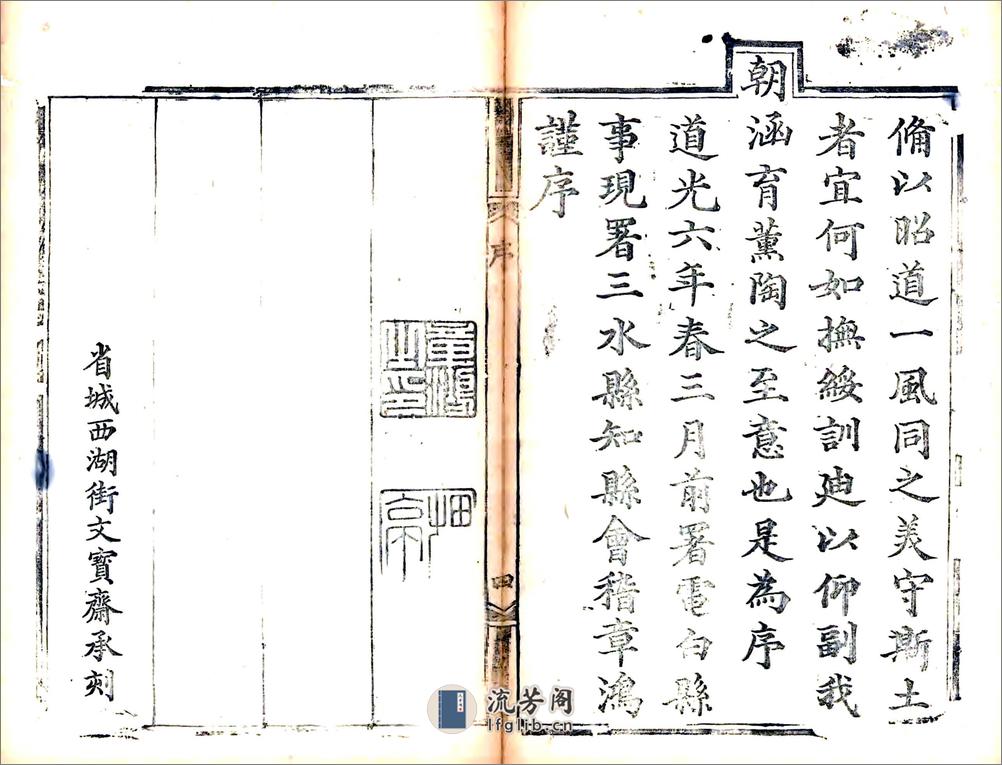 備以昭道一風同之美守斯土
者宜何如撫綏訓廸以仰副我
朝涵育薰陶之至意也是為序
道光六年春三月前署電白縣
事現署三水縣知縣會稽章鴻
謹序
序
四
章鴻
之印
省城西湖街文寶齋承刻
流芳阁
lfglib.cn